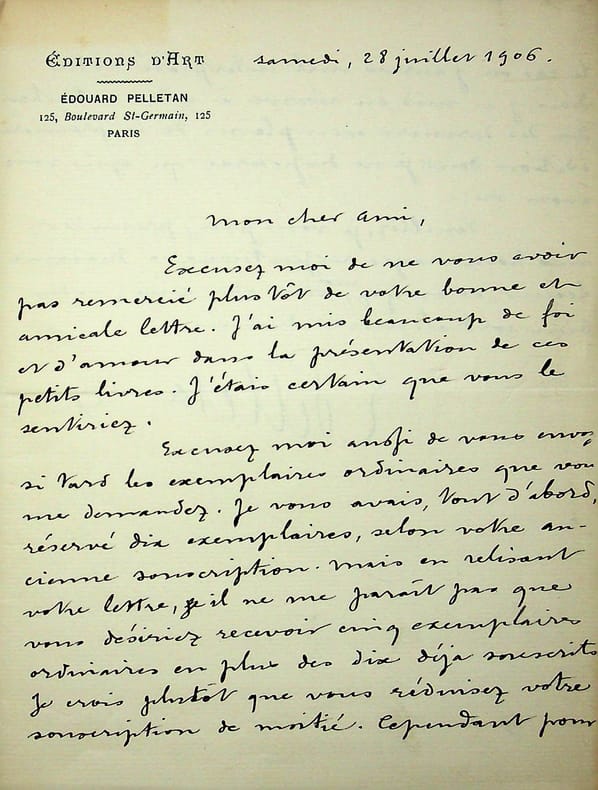 ÉDITIONS D'ART
samedi, 28 juillet 1906.
ÉDOUARD PELLETAN
125, Boulevard St-Germain, 125
PARIS
Mon cher ami,
Excusez moi de ne vous avoir
pas remercié plus tôt de votre bonne et
amicale lettre. J'ai mis beaucoup de foi
et d'amour dans la présentation de ces
petits livres. J'étais certain que vous le
sentiriez.
Excusez moi aussi de vous envoyer
si tard les exemplaires ordinaires que vous
me demandez. Je vous avais, tout d'abord,
réservé dix exemplaires, selon votre an-
cienne souscription. Mais en relisant
votre lettre, il ne me paraît pas que
vous désiriez recevoir cinq exemplaires
ordinaires en plus des dix déja souscrits
Je crois plutôt que vous réduisez votre
souscription de moitié. Cependant pour